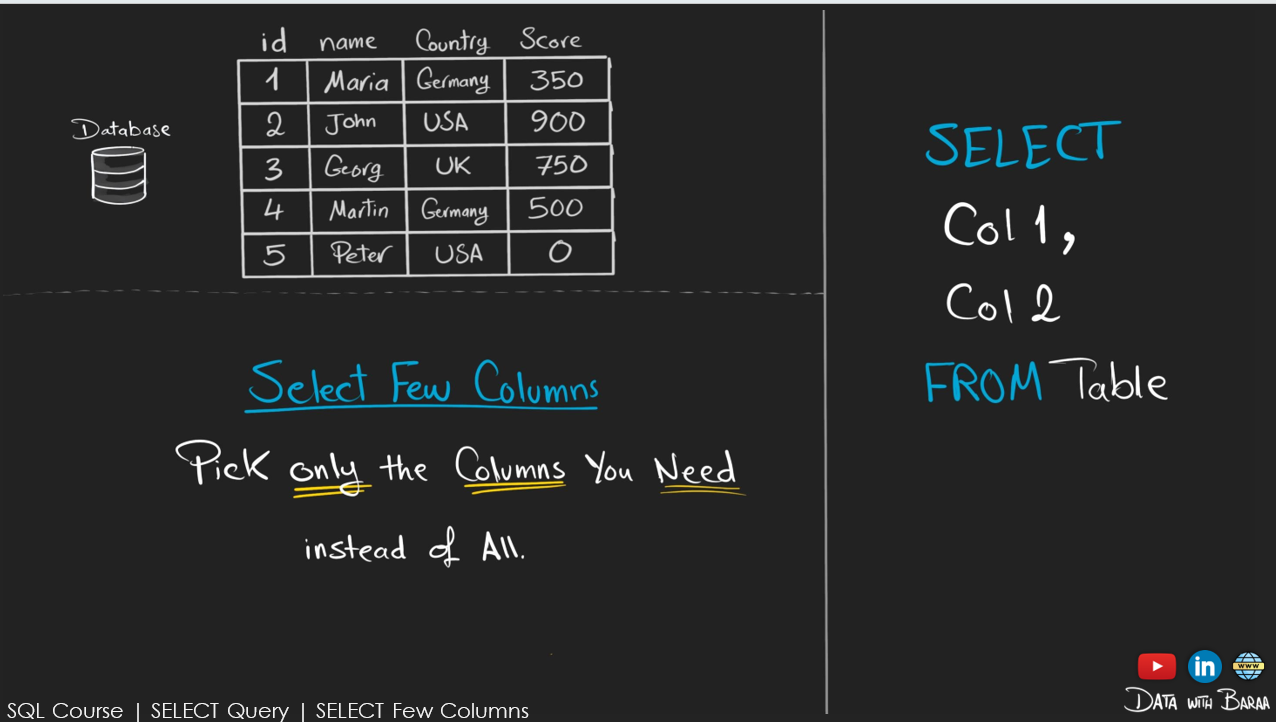 Database
id name Country Score
1 Maria Germany 350
2 John USA 900
3 Georg UK 750
4 Martin Germany 500
5 Peter USA 0
Select Few Columns
Pick only the Columns You Need
instead of All.
SELECT
Col 1,
Col 2
FROM Table
in
WWW
DATA WITH BARAA
SQL Course | SELECT Query | SELECT Few Columns